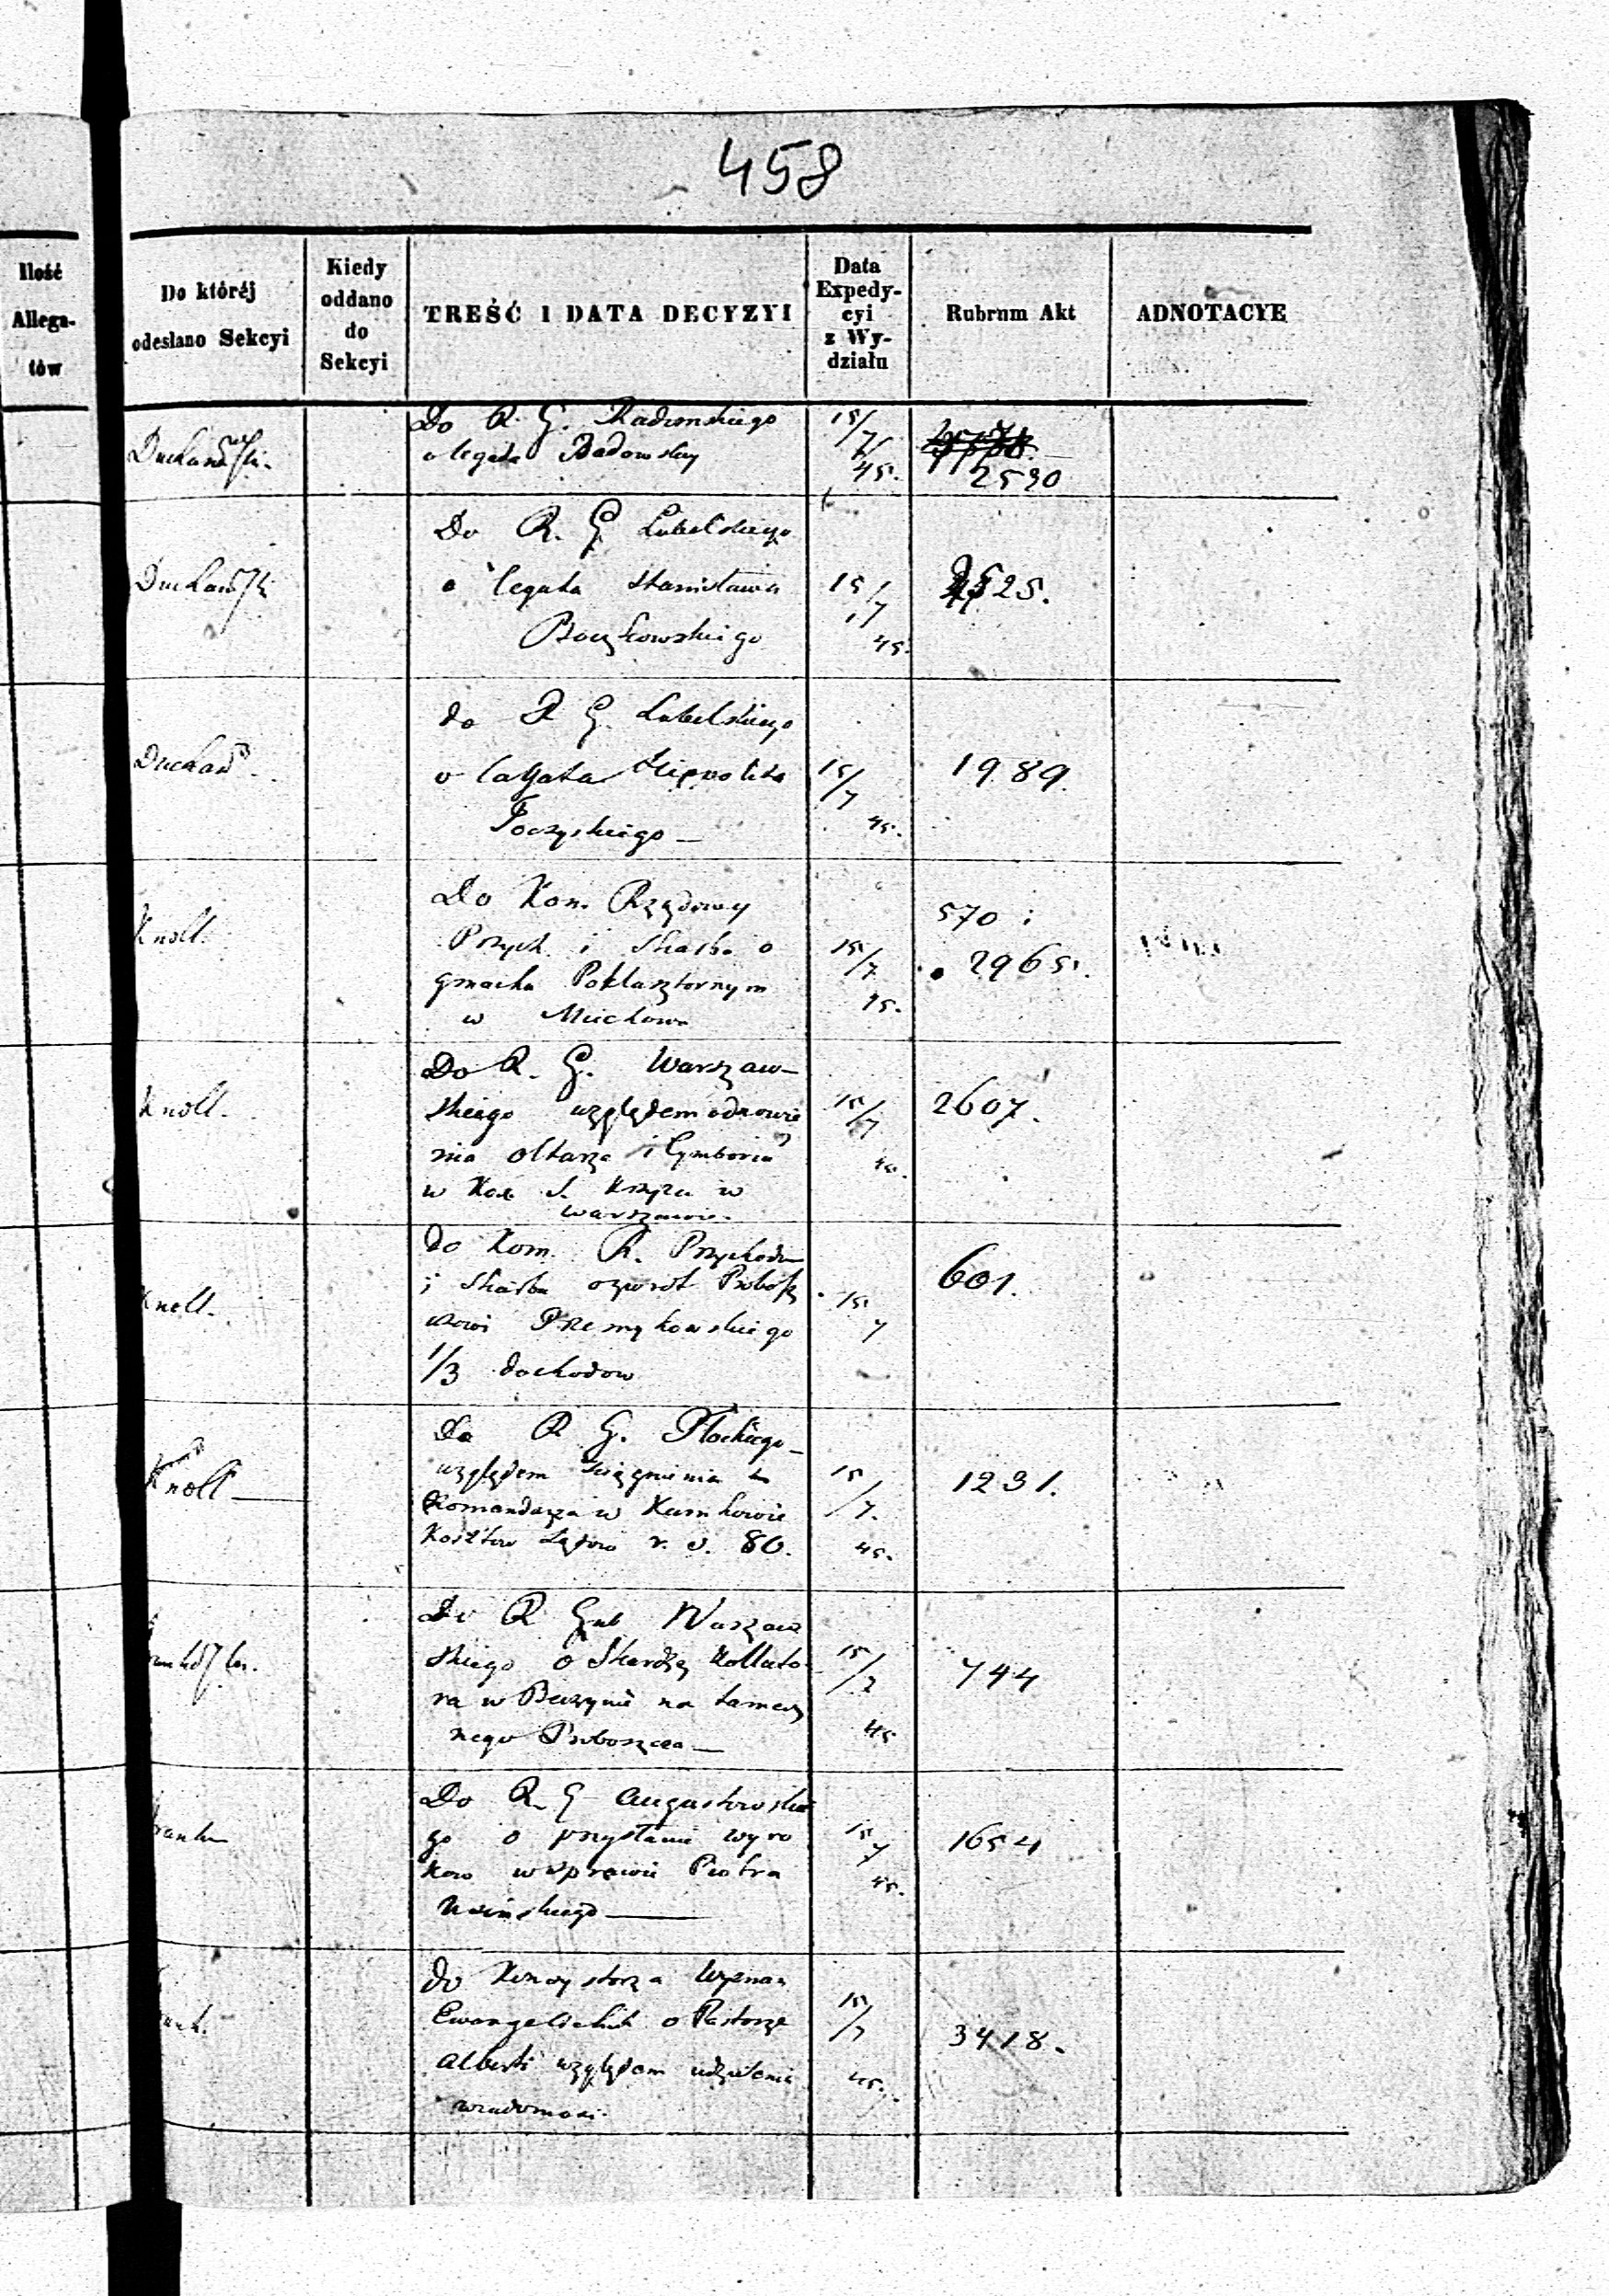 458
Ilość
Allega-
tów
Do któréj
odesłano Sekcyi
Kiedy
oddano
do
Sekcyi
TREŚĆ I DATA DECYZYI
Data
Expedy-
cyi
z Wy-
działu
Rubrum Akt
ADNOTACYE
Do R. G. Radomskiego
o legata
15/7
45.
2590
Do R. G. Lubelskiego
o legata Stanisława
15/7
45.
2525.
do R G. Lubelskiego
o Legata Hippolita
Toczyskiego —
15/7
45.
1989.
Knoll.
Do Kom. Rządowy
Przych. i Skarbu o
gmachu Poklasztornym
w Miechowie
15/7
45.
570 i
2965.
Knoll.
Do R. G. Warszaw-
skiego względem odnowie
nia ołtarza i Cymborium
w Koś S. Krzyża w
Warszawie.
15/7
45.
2607.
Knoll.
do Kom. R. Przychodu
i Skarbu o zwrot Probosz
czowi Przemykowskiego
1/3 dochodow
15
7
601.
Knoll —
Do R G. Płockiego —
względem ściągnienia z
w
Kosztow Sądow r. s. 80.
15/7.
45.
1231.
Do R Gub Warszaw
skiego o Skardze Kollato
ra w na tamecz
nego Proboszcza —
15/7
45
744
Do R. G Augustowskie
go o przysłanie wyro
kow w sprawie Piotra
15
7
45.
1654
do Konsystorza Wyznań
Ewangelickich o Pastorze
Alberti względem udzielenia
wiadomości.
15/7
45.
3418.